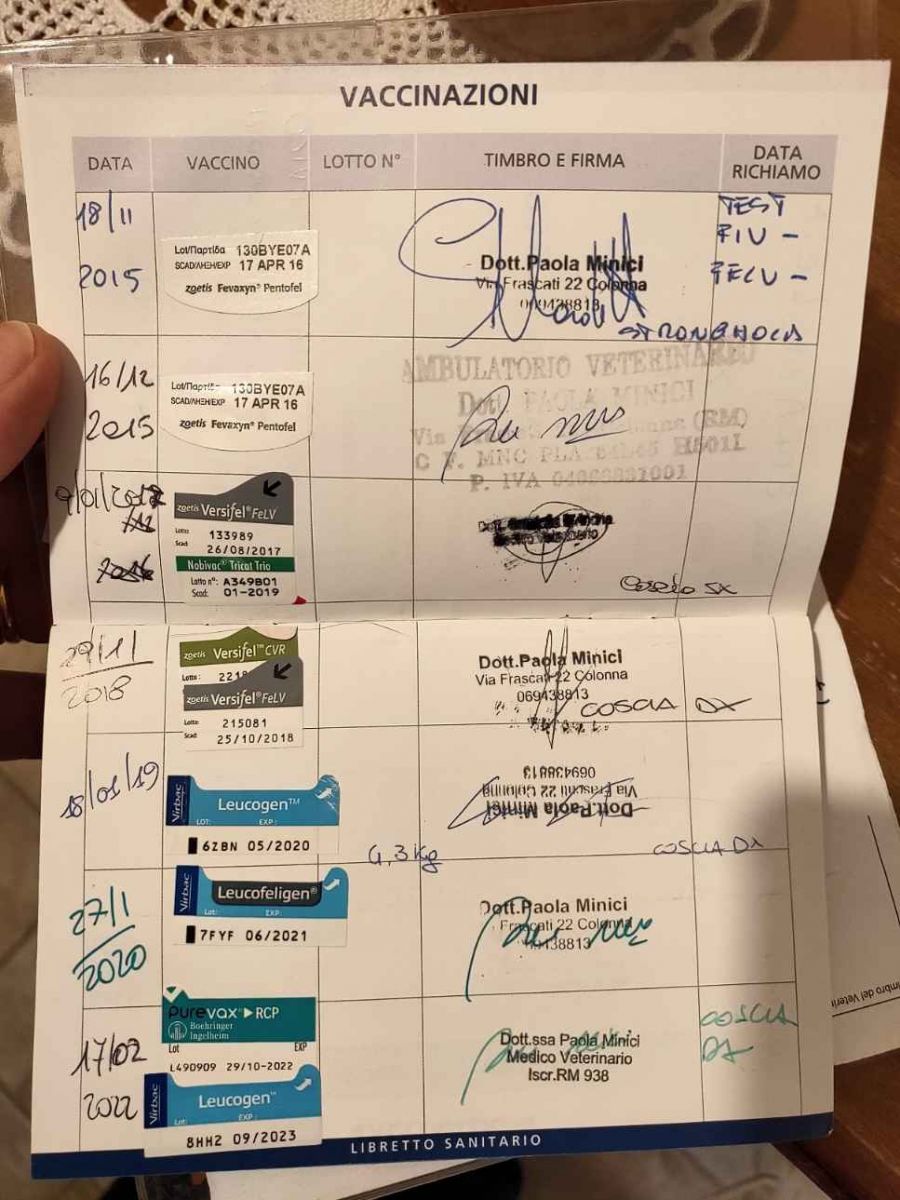 VACCINAZIONI
DATA VACCINO LOTTO N° TIMBRO E FIRMA DATA RICHIAMO
18/11
2015
Lot/Партіда 130BYE07A
SCAD/ΛΗΞΗ/EXP 17 APR 16
zoetis Fevaxyn® Pentofel
Dott.Paola Minici
Via Frascati 22 Colonna
069438813
TEST
FIV -
FELV -
STRONGHOLD
16/12
2015
130BYE07A
SCAD/ΛΗΞΗ/EXP 17 APR 16
zoetis Fevaxyn® Pentofel
AMBULATORIO VETERINARIO
Dott. PAOLA MINICI
Via
(RM)
C F. MNC PLA H501L
P. IVA
9/01/2017
zoetis Versifel® FeLV
Lotto: 133989
Scad: 26/08/2017
Nobivac® Tricat Trio
Lotto n°: A349B01
Scad: 01-2019
SX
29/1/
2018
zoetis Versifel™ CVR
Lotto:
zoetis Versifel® FeLV
Lotto: 215081
Scad: 25/10/2018
Dott.Paola Minici
Via Frascati 22 Colonna
069438813
COSCIA DX
18/01/19
Virbac
Leucogen™
LOT: EXP:
6ZBN 05/2020
4,3 Kg
Dott.Paola Minici
Via Frascati 22 Colonna
069438813
COSCIA DX
27/1
2020
Virbac
Leucofeligen®
Lot: EXP:
7FYF 06/2021
Dott.Paola Minici
Frascati 22 Colonna
17/02
2022
Purevax® RCP
Boehringer
Ingelheim
Lot EXP
L490909 29/10-2022
Virbac
Leucogen™
Lot: EXP:
8HH2 09/2023
Dott.ssa Paola Minici
Medico Veterinario
Iscr.RM 938
COSCIA
DX
LIBRETTO SANITARIO